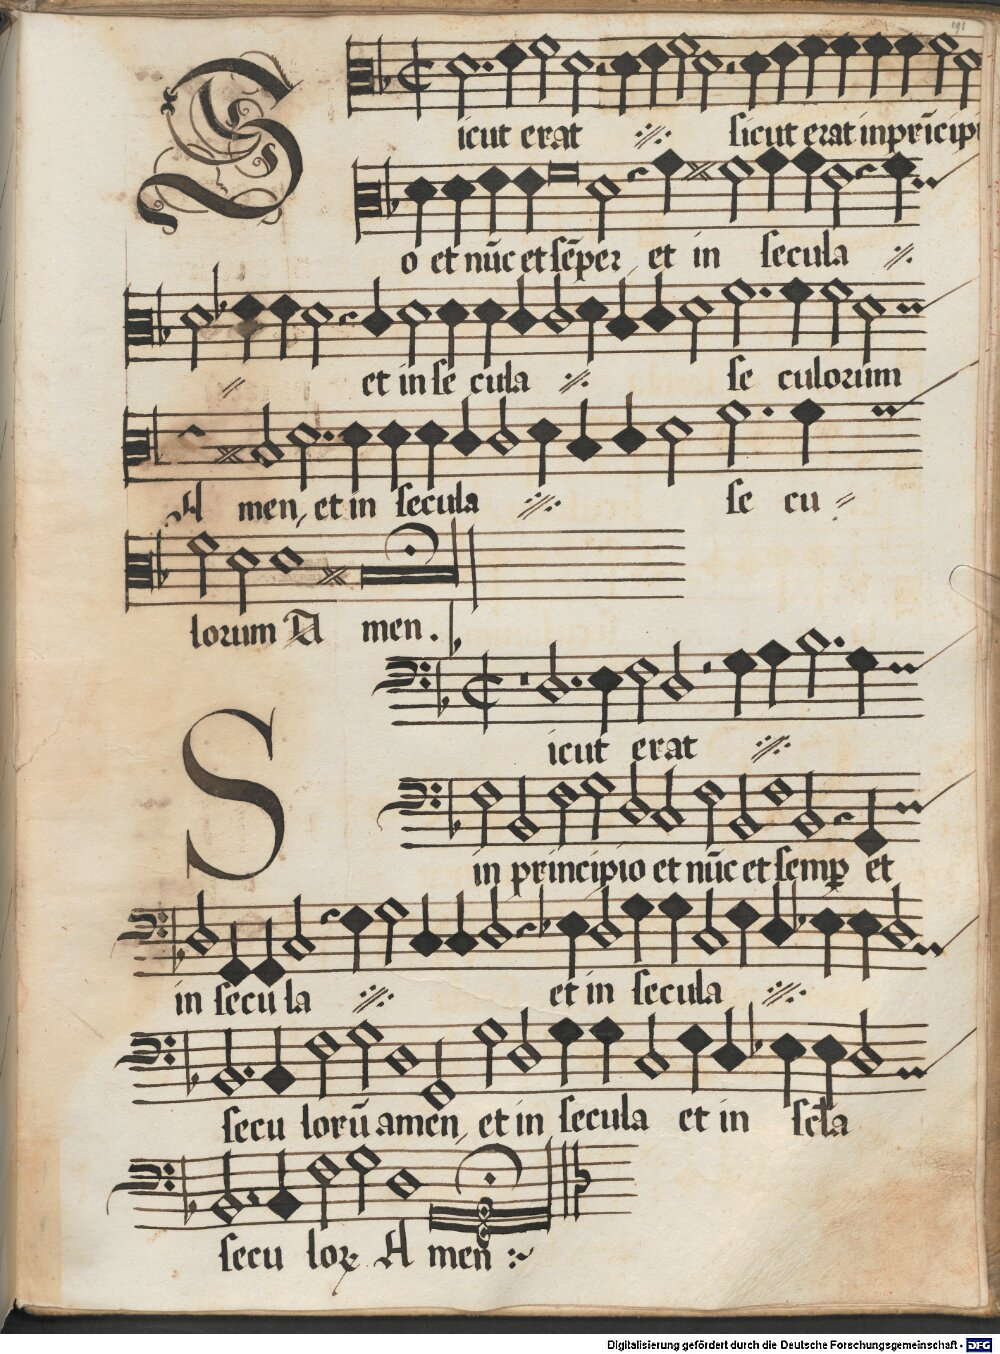 191
Sicut erat sicut erat in prīcipi
o et nūc et sēper et in secula
et in se cula se culorum
A men, et in secula se cu
lorum A men.
Sicut erat
in principio et nūc et semꝑ et
in secu la et in secula
secu lorū amen, et in secula et in scła
secu loꝝ A men
Digitalisierung gefördert durch die Deutsche Forschungsgemeinschaft - DFG